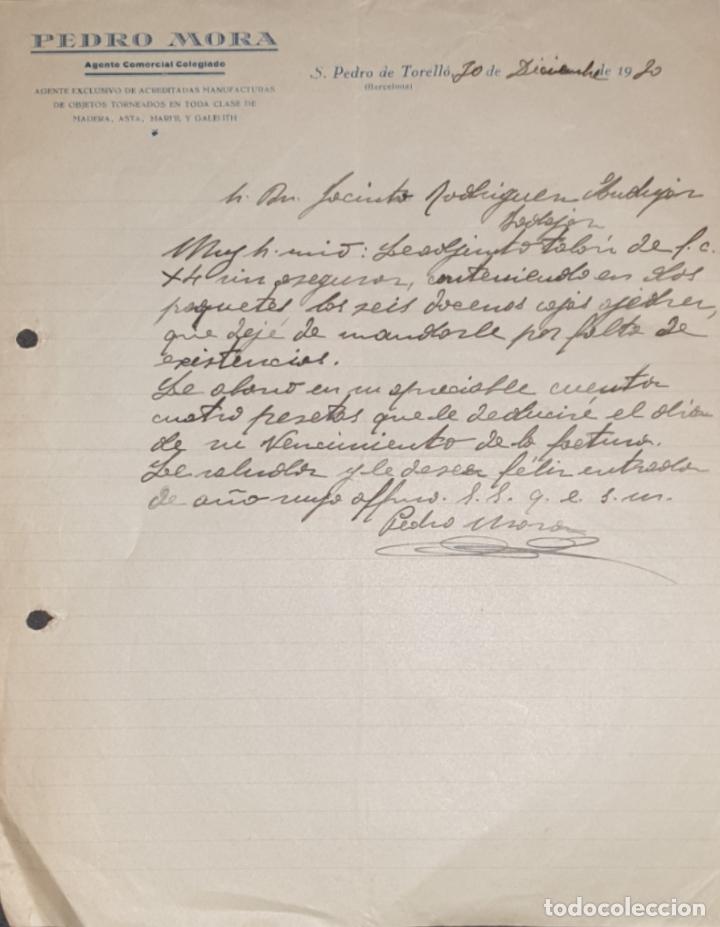 PEDRO MORA
Agente Comercial Colegiado
AGENTE EXCLUSIVO DE ACREDITADAS MANUFACTURAS
DE OBJETOS TORNEADOS EN TODA CLASE DE
MADERA, ASTA, MARFIL Y GALELITH
S. Pedro de Torelló, 30 de Diciembre de 1930
(Barcelona)
Sr. Dn. Jacinto Rodriguez Andujar
Badajoz
Muy Sr. mio: Le adjunto talón de f. c.
sin asegurar, conteniendo en dos
paquetes las seis docenas cajas ajedrez,
que dejé de mandarle por falta de
existencias.
Le abono en su apreciable cuenta
cuatro pesetas que le deduciré el dia
de su vencimiento de la factura.
Le saluda y le desea feliz entrada
de año nuevo affmo. S. S. q. e. s. m.
Pedro Mora
todocoleccion